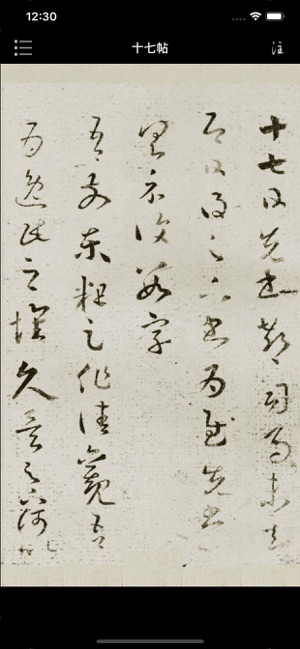 12:30
十七帖
注
十七日先書郗司馬未去
即日得足下書為慰先書
以具示復數字
吾前東粗足作佳觀吾
為逸民之懷久矣足下何以